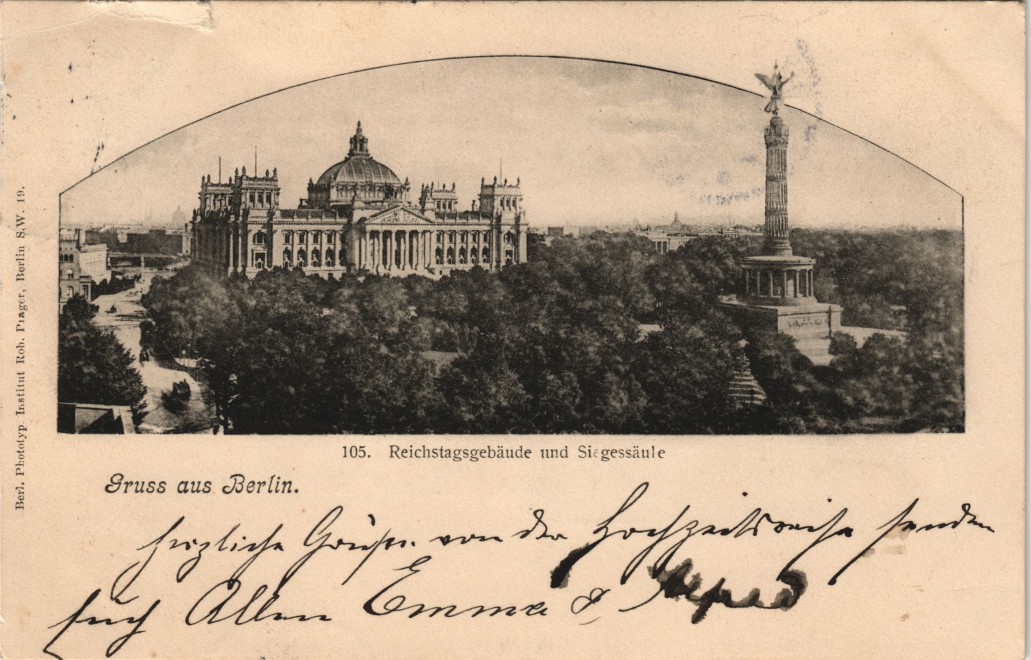 Berl. Phototyp. Institut Rob. Prager, Berlin S.W. 19.
105. Reichstagsgebäude und Siegessäule
Gruss aus Berlin.
herzliche Grüße von der Hochzeitsreise senden
Euch Allen Emma & Alfred